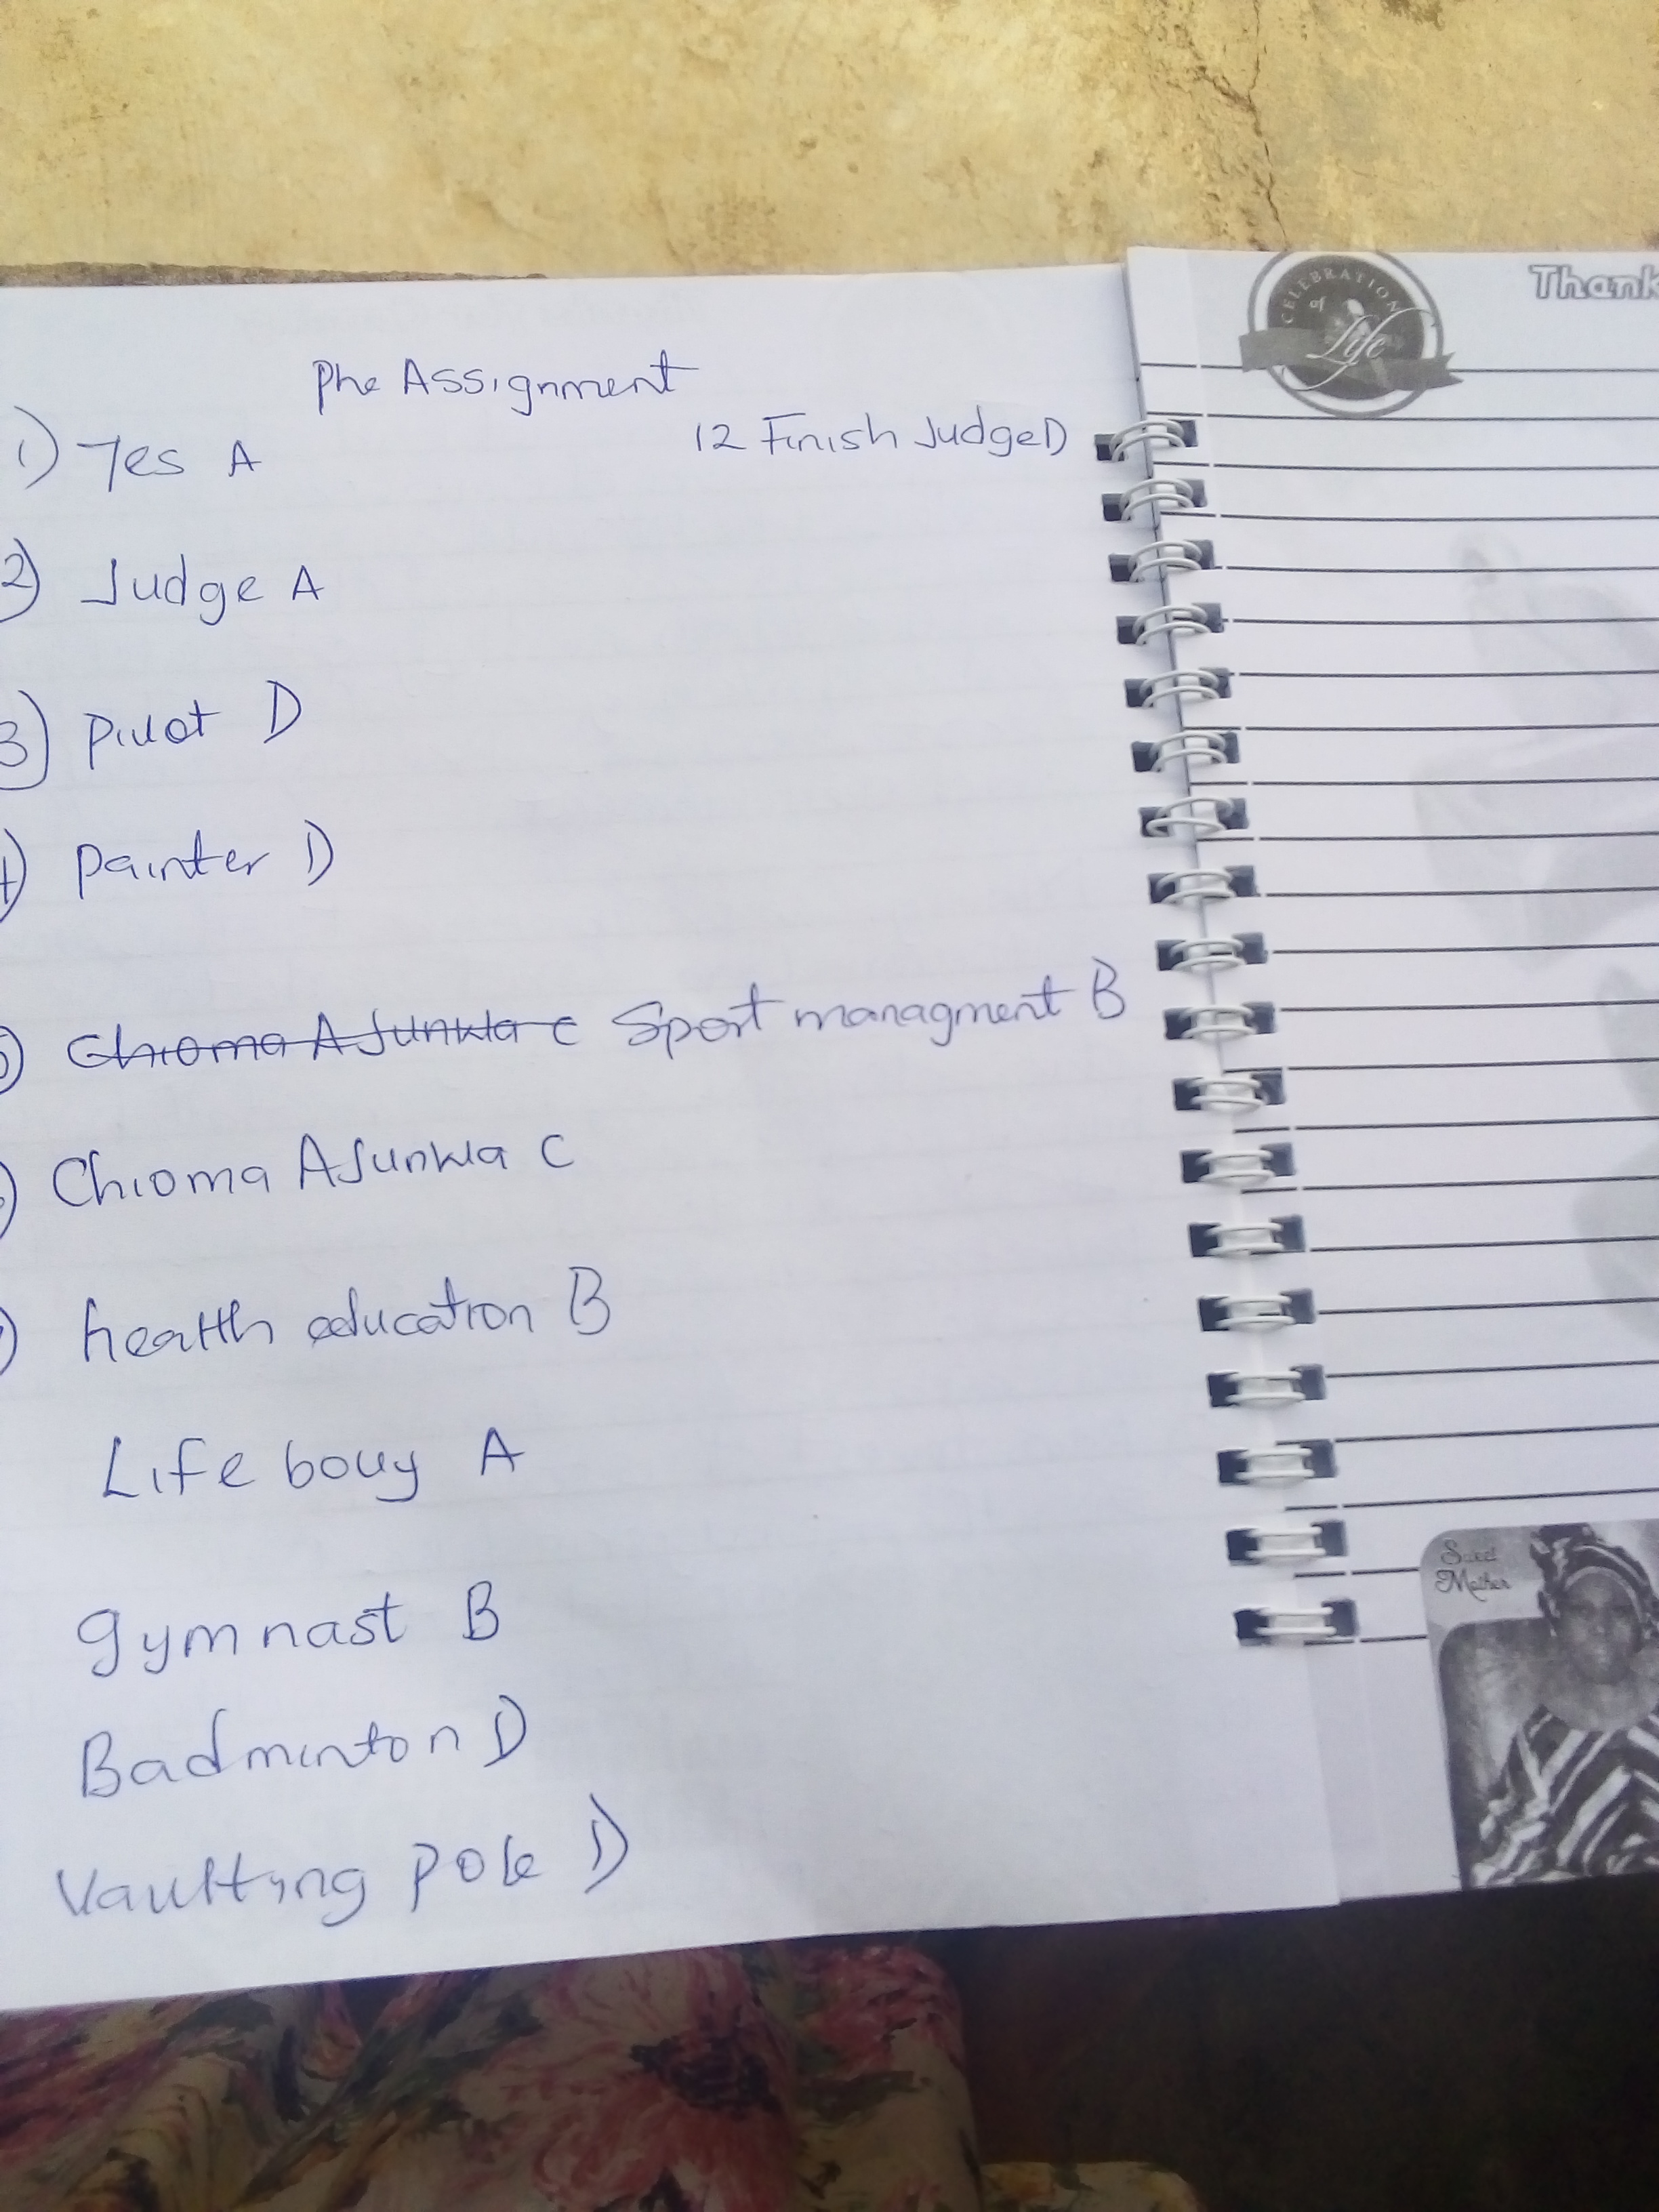 Phe Assignment
1) Yes A
2) Judge A
3) Pivot D
4) Painter D
5) Chioma AJunwa C Sport managment B
6) Chioma AJunwa C
7) health education B
Life bouy A
gymnast B
Badminton D
Vaulting pole D
12 Finish Judge D
CELEBRATION
of
Life
Thank
Sweet
Mother